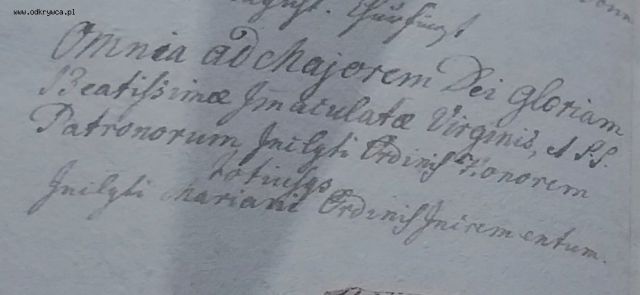 www.odkrywca.pl
Omnia ad Majorem Dei Gloriam
Beatissimæ Jmaculatæ Virginis, et S.S.
Patronorum Jnclyti Ordinis Honorem
totiusqs
Jnclyti Mariani Ordinis Jncrementum.